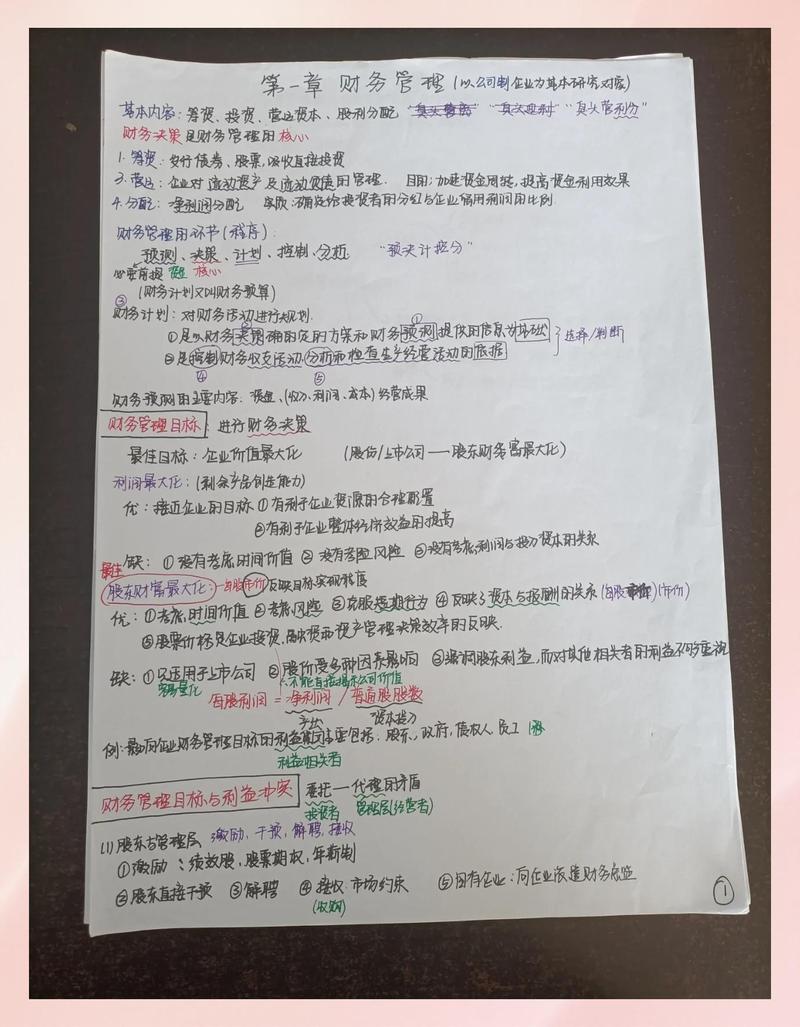 第一章 财务管理(以公司制企业为基本研究对象)
基本内容：筹资、投资、营运资本、股利分配 “真头营利分”
财务决策是财务管理的核心
1. 筹资：发行债券、股票，吸收直接投资
3. 营运：企业对流动资产及流动负债的管理. 目的：加速资金周转，提高资金利用效果
4. 分配：净利润分配 实质：确定给投资者的分红与企业留用利润的比例
财务管理的环节(程序)：
预测、决策、计划、控制、分析 “预决计控分”
必要前提 核心
(财务计划又叫财务预算)
③
财务计划：对财务活动进行规划.
② ①
①是以财务决策确立的方案和财务预测提供的信息为基础 选择/判断
②是控制财务收支活动、分析和检查生产经营活动的依据
④ ⑤
财务预测的主要内容：资金、(收入、利润、成本)经营成果
财务管理目标：进行财务决策
最佳目标：企业价值最大化 (股份/上市公司——股东财富最大化)
利润最大化：(剩余产品创造能力)
优：接近企业的目标 ①有利于企业资源的合理配置
②有利于企业整体经济效益的提高
缺：①没有考虑时间价值 ②没有考虑风险 ③没有考虑利润与投入资本的关系
最佳
股东财富最大化：每股市价反映目标实现程度
优：①考虑时间价值 ②考虑风险 ③克服短期行为 ④反映了资本与报酬的关系(每股市价)(市价)
⑤股票价格是企业投资、融资和资产管理决策效率的反映.
缺：①只适用于上市公司 ②股价受多种因素影响 ③强调股东利益，而对其他相关者的利益不够重视
容易量化 ∴不能直接揭示公司价值
每股利润=净利润/普通股股数
产出 资本投入
例：影响企业财务管理目标的利益集团主要包括：股东、政府、债权人、员工
利益相关者
财务管理目标与利益冲突 委托—代理的矛盾
投资者 管理层(经营者)
(1)股东与管理层 激励、干预、解聘、接收
①激励：绩效股，股票期权，年薪制
②股东直接干预 ③解聘 ④接收 市场约束 ⑤国有企业：向企业派遣财务总监
(收购)
①